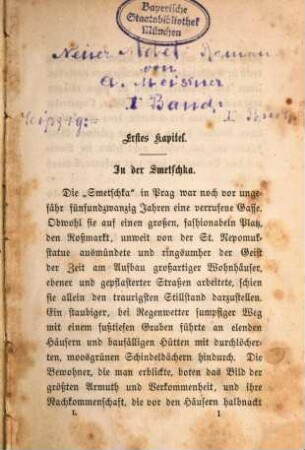 Bayerische
Staatsbibliothek
München
Neuer Adel Roman
von
A. Meißner
I Band
Leipzig:
Erstes Kapitel.
In der Smetschka.
Die „Smetschka“ in Prag war noch vor unge-
fähr fünfundzwanzig Jahren eine verrufene Gasse.
Obwohl sie auf einen großen, fashionabeln Platz,
den Roßmarkt, unweit von der St. Nepomuk-
statue ausmündete und ringsumher der Geist
der Zeit am Aufbau großartiger Wohnhäuser,
ebener und gepflasterter Straßen arbeitete, schien
sie allein den traurigsten Stillstand darzustellen.
Ein staubiger, bei Regenwetter sumpfiger Weg
mit einem fußtiefen Graben führte an elenden
Häusern und baufälligen Hütten mit durchlöcher-
ten, moosgrünen Schindeldächern hindurch. Die
Bewohner, die man erblickte, boten das Bild der
größten Armuth und Verkommenheit, und ihre
Nachkommenschaft, die vor den Häusern halbnackt
I. 1